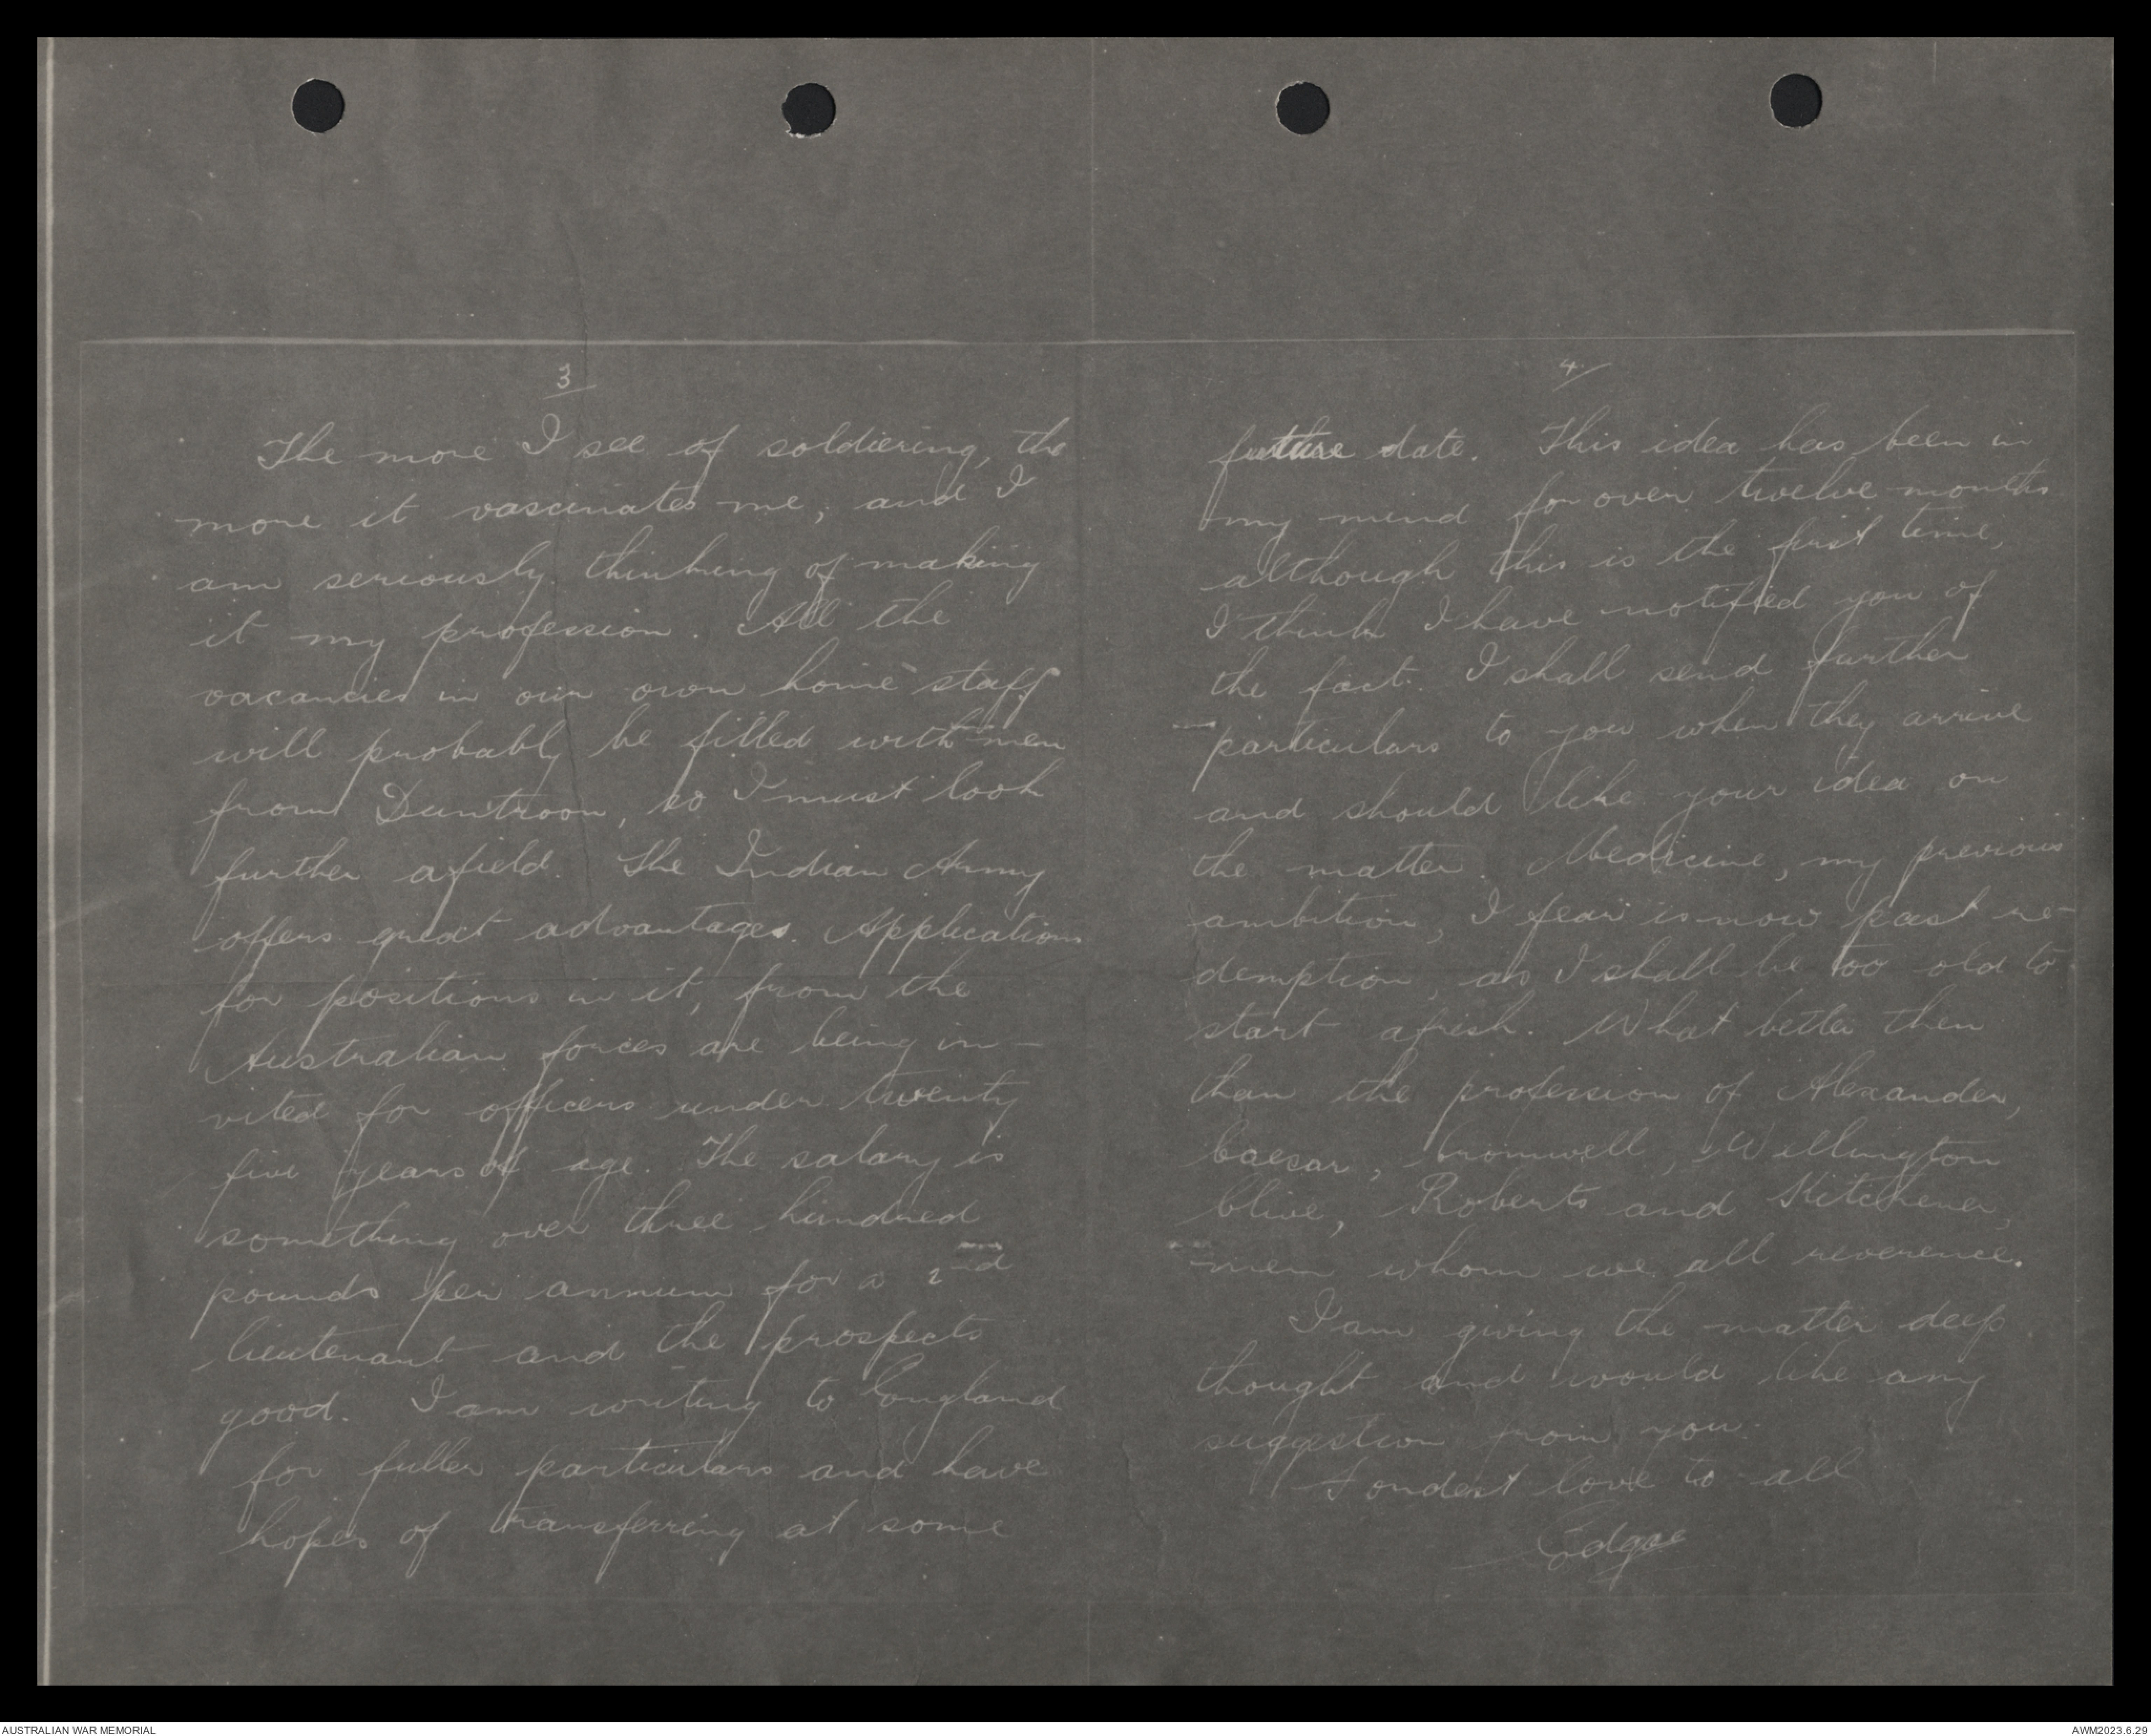 3
The more I see of soldiering, the
more it vascinates me, and I
am seriously thinking of making
it my profession. All the
vacancies in our own home staff
will probably be filled with men
from Duntroon, so I must look
further afield. The Indian Army
offers great advantages. Applications
for positions in it, from the
Australian forces are being in-
vited for officers under twenty
five years of age. The salary is
something over three hundred
pounds per annum for a 2nd
lieutenant and the prospects
good. I am writing to England
for fuller particulars and have
hopes of transferring at some
4.
future date. This idea has been in
my mind for over twelve months
although this is the first time,
I think I have notified you of
the fact. I shall send further
particulars to you when they arrive
and should like your idea on
the matter. Medicine, my previous
ambition, I fear is now past re-
demption, as I shall be too old to
start afresh. What better then
than the profession of Alexander,
Caesar, Cromwell, Wellington
Clive, Roberts and Kitchener,
men whom we all reverence.
I am giving the matter deep
thought and would like any
suggestion from you.
Fondest love to all
Edgar
AUSTRALIAN WAR MEMORIAL
AWM2023.6.29